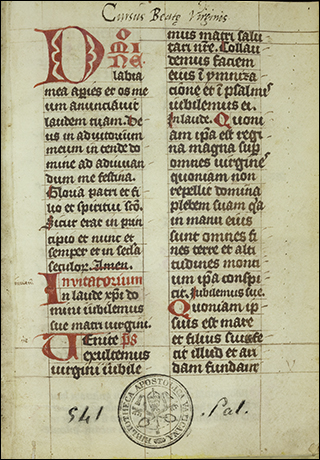 Cursus Beatę Virginis
DOMINE
labia
mea aperies et os me
um anunciavit
laudem tuam. De
us in adiutorium
meum in tende do
mine ad adiuvan
dum me festina.
Gloria patri et fi
lio et spiritui scō.
Sicut erat in prin
cipio et nunc et
semper et in secła
seculoꝝ. amen.
Invitatorium
In laude xp̄i do
mini iubilemus
sue matri virgini.
Uenite p̄s
exultemus
virgini iubile
mus matri salu
tari nr̄e. Collau
demus faciem
eius ī ymnizа
cione et ī psalmis
iubilemus ei.
In laude. Quoni
am ip̄a est regi
na magna sup
omnes virgines
quoniam non
repellit domina
plebem suam q̄a
in manu eius
sunt omnes fi
nes terre et alti
tudines monti
um ip̄a conspi
cit. Iubilemus sue.
Quoniam ip
sius est mare
et filius suus fe
cit illud et ari
dam fundaver
541 .Pal.
BIBLIOTHECA APOSTOLICA VATICANA